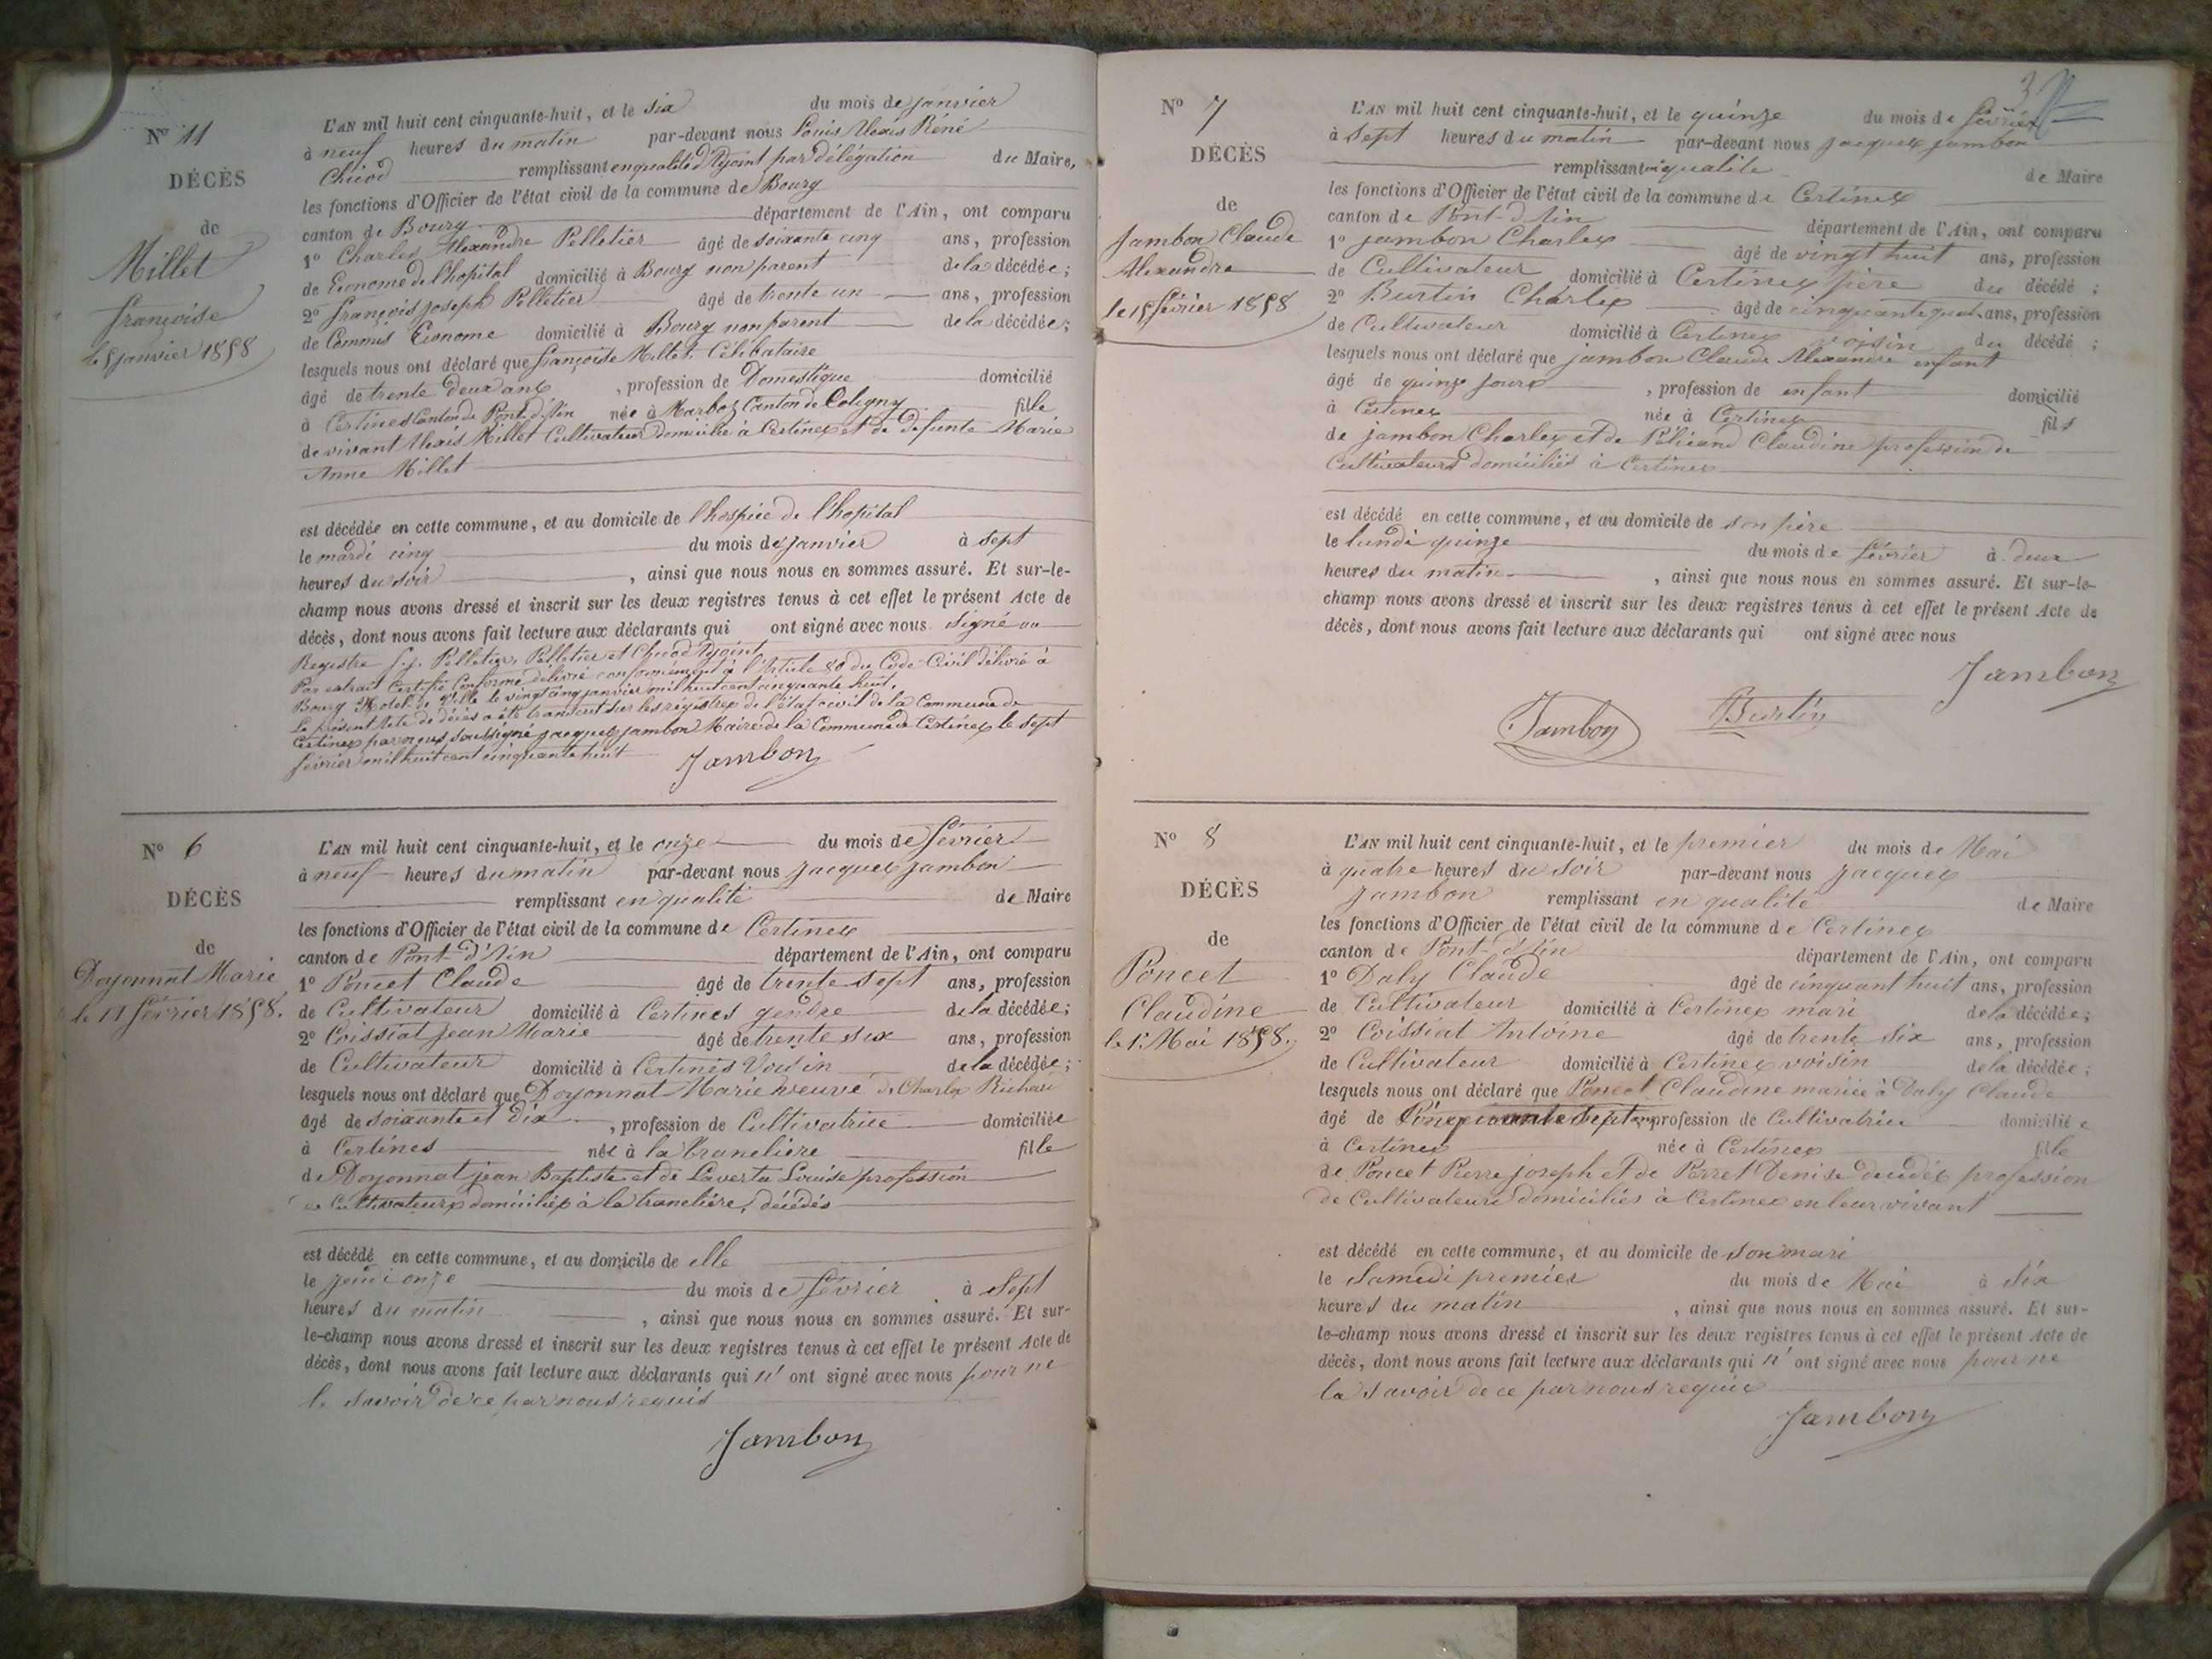 Nº 11
DÉCÈS
de
Millet
françoise
le 5 janvier 1858
L'AN mil huit cent cinquante-huit, et le six du mois de janvier
à neuf heures du matin par-devant nous Louis Alexis Réné
Chicod remplissant en qualité d'Adjoint par délégation du Maire,
les fonctions d'Officier de l'état civil de la commune de Bourg
canton de Bourg département de l'Ain, ont comparu
1º Charles Alexandre Pelletier âgé de soixante cinq ans, profession
de Econome de l'hopital domicilié à Bourg non parent de la décédée;
2º françois joseph Pelletier âgé de trente un ans, profession
de Commis Econome domicilié à Bourg non parent de la décédée;
lesquels nous ont déclaré que françoise Millet, Célibataire
âgé de trente deux ans, profession de Domestique domicilié
à Certines Canton de Pont d'Ain née à Marboz Canton de Coligny fille
de vivant Alexis Millet Cultivateur domicilié à Certines et de defunte Marie
Anne Millet
est décédée en cette commune, et au domicile de l'hospice de l'hopital
le mardi cinq du mois de janvier à sept
heures du soir, ainsi que nous nous en sommes assuré. Et sur-le-
champ nous avons dressé et inscrit sur les deux registres tenus à cet effet le présent Acte de
décès, dont nous avons fait lecture aux déclarants qui ont signé avec nous. Signé au
Registre f. j. Pelletier, Pelletier et Chicod Adjoint
Par extrait Certifié Conforme délivré conformément à l'Article 80 du Code Civil délivré à
Bourg Hotel de Ville le vingt cinq janvier mil huit cent cinquante huit.
Le présent Acte de décès a été transcrit sur les régistres de l'état civil de la Commune de
Certines par nous soussigné jacques jambon Maire de la Commune de Certines le sept
février mil huit cent cinquante huit
Jambon
Nº 6
DÉCÈS
de
Doyonnat Marie
le 11 février 1858.
L'AN mil huit cent cinquante-huit, et le onze du mois de février
à neuf heures du matin par-devant nous jacques jambon
remplissant en qualité de Maire
les fonctions d'Officier de l'état civil de la commune de Certines
canton de Pont-d'Ain département de l'Ain, ont comparu
1º Poncet Claude âgé de trente sept ans, profession
de Cultivateur domicilié à Certines gendre de la décédée;
2º Coissiat jean Marie âgé de trente six ans, profession
de Cultivateur domicilié à Certines Voisin de la décédée;
lesquels nous ont déclaré que Doyonnat Marie veuve de Charles Richard
âgé de soixante et dix, profession de Cultivatrice domiciliée
à Certines née à la tranclière fille
de Doyonnat jean Baptiste et de Louise profession
de Cultivateurs domiciliés à la tranclière, décédés
est décédé en cette commune, et au domicile de elle
le jeudi onze du mois de février à sept
heures du matin, ainsi que nous nous en sommes assuré. Et sur-
le-champ nous avons dressé et inscrit sur les deux registres tenus à cet effet le présent Acte de
décès, dont nous avons fait lecture aux déclarants qui n'ont signé avec nous pour ne
le savoir de ce par nous requis
Jambon
Nº 7
DÉCÈS
de
Jambon Claude
Alexandre
le 15 février 1858
3
L'AN mil huit cent cinquante-huit, et le quinze du mois de février
à sept heures du matin par-devant nous jacques jambon
remplissant en qualité de Maire
les fonctions d'Officier de l'état civil de la commune de Certines
canton de Pont-d'Ain département de l'Ain, ont comparu
1º jambon Charles âgé de vingt huit ans, profession
de Cultivateur domicilié à Certines père du décédé;
2º Burtin Charles âgé de cinquante quat. ans, profession
de Cultivateur domicilié à Certines voisin du décédé;
lesquels nous ont déclaré que jambon Claude Alexandre enfant
âgé de quinze jours, profession de enfant domicilié
à Certines née à Certines fils
de jambon Charles et de Pélicand Claudine profession de
Cultivateurs domiciliés à Certines
est décédé en cette commune, et au domicile de son père
le lundi quinze du mois de février à deux
heures du matin, ainsi que nous nous en sommes assuré. Et sur-le-
champ nous avons dressé et inscrit sur les deux registres tenus à cet effet le présent Acte de
décès, dont nous avons fait lecture aux déclarants qui ont signé avec nous
Jambon
Jambon Burtin
Nº 8
DÉCÈS
de
Poncet
Claudine
le 1er Mai 1858.
L'AN mil huit cent cinquante-huit, et le premier du mois de Mai
à quatre heures du soir par-devant nous jacques
jambon remplissant en qualité de Maire
les fonctions d'Officier de l'état civil de la commune de Certines
canton de Pont-d'Ain département de l'Ain, ont comparu
1º Daly Claude âgé de cinquant huit ans, profession
de Cultivateur domicilié à Certines mari de la décédée;
2º Coissiat Antoine âgé de trente six ans, profession
de Cultivateur domicilié à Certines voisin de la décédée;
lesquels nous ont déclaré que Poncet Claudine mariée à Daly Claude
âgé de Cinquante Sept ans, profession de Cultivatrice domiciliée
à Certines née à Certines fille
de Poncet Pierre joseph et de Perret Denise décédés profession
de Cultivateurs domiciliés à Certines en leur vivant
est décédé en cette commune, et au domicile de son mari
le Samedi premier du mois de Mai à six
heures du matin, ainsi que nous nous en sommes assuré. Et sur-
le-champ nous avons dressé et inscrit sur les deux registres tenus à cet effet le présent Acte de
décès, dont nous avons fait lecture aux déclarants qui n'ont signé avec nous pour ne
la savoir de ce par nous requis
Jambon